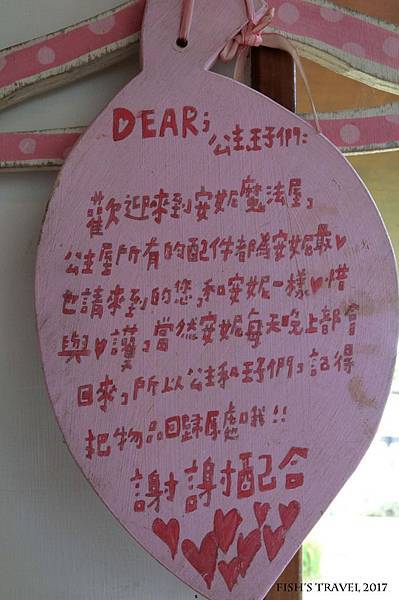 DEAR;
公主王子們:
歡迎來到安妮魔法屋,
公主屋所有的配件都為安妮最♥
也請來到的您,和安妮一樣♥惜
與♥護,當然安妮每天晚上都會
回來,所以公主和王子們,記得
把物品回歸原處哦!!
謝謝配合
FISH'S TRAVEL 2017